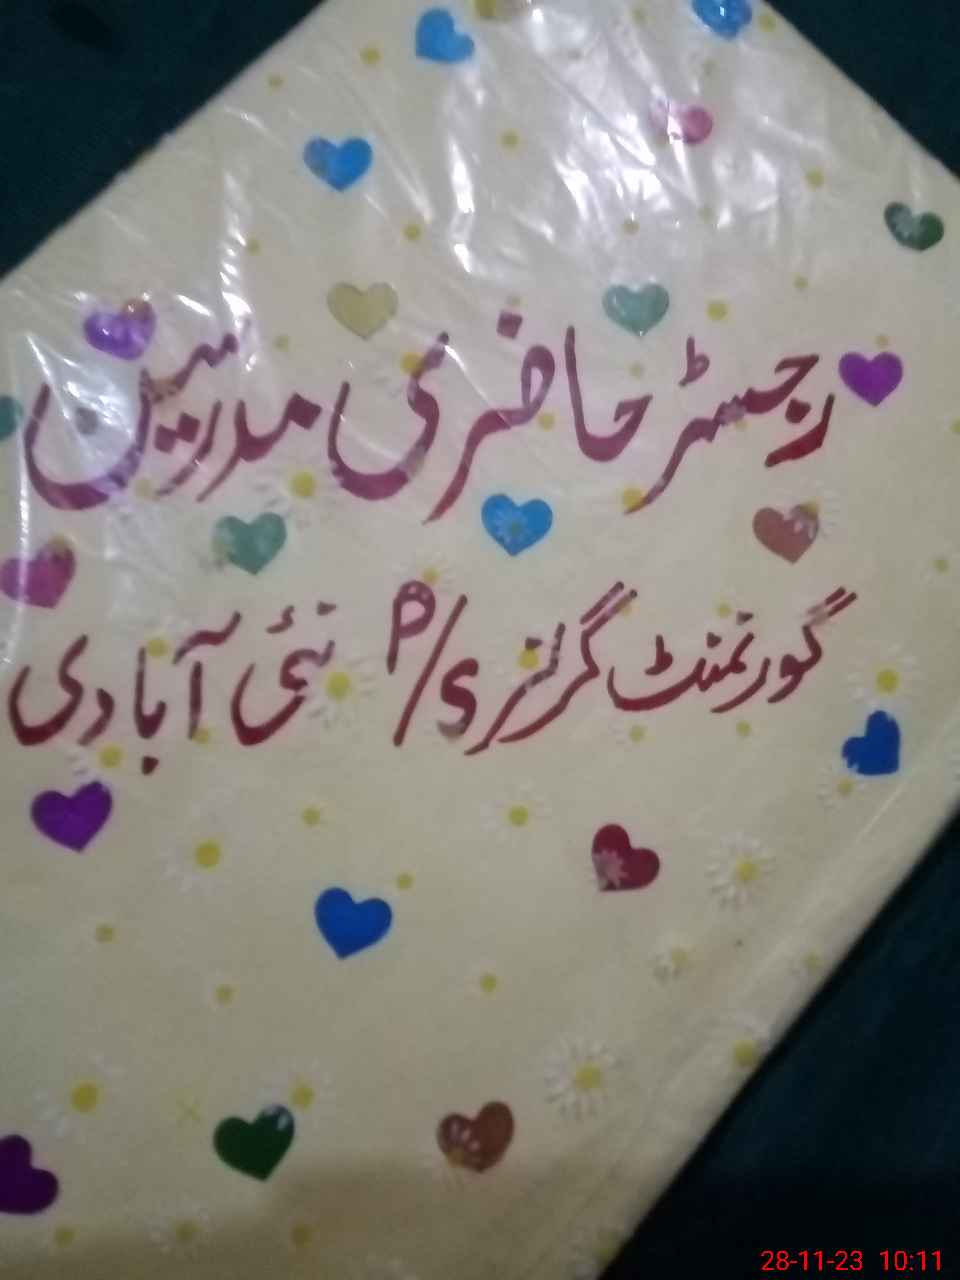 رجسٹر حاضری مدرسین
گورنمنٹ گرلز P/S نئی آبادی
28-11-23 10:11